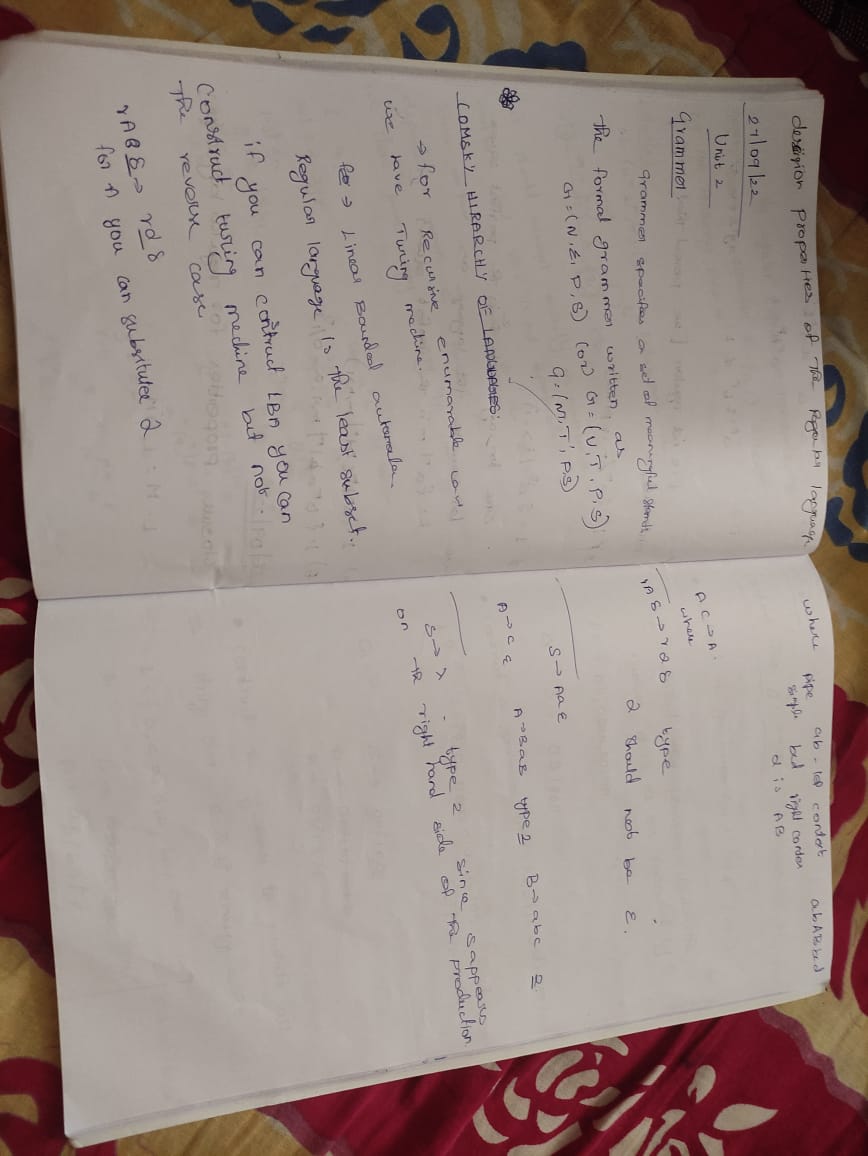 desicion properties of The Regular language
27/09/22
Unit 2
Grammer
grammer specifies a set of meaningful
The formal grammer written as
G = (N, Σ, P, S) (or) G = (V, T, P, S)
G = (N, T, P, S)
COMSKY HIRARCHY OF LANGUAGES:
→ for Recursive enumarable
we have Turing machine.
→ Linear Bounded automata.
Regular language is the least subset.
if you can contruct LBA you can
Construct turing machine but not
The reverse case
γAB δ → γ α δ
for A you can subsitulee 2
where pipe ab - context abABbcd
simple bcd right
α is AB
AC → A.
where
γAδ → γαδ type
α should not be ε.
S → Aaε
A → cε A → Bab type 2 B → abc 2
S → λ - type 2 since s appears
on the right hand side of the production.